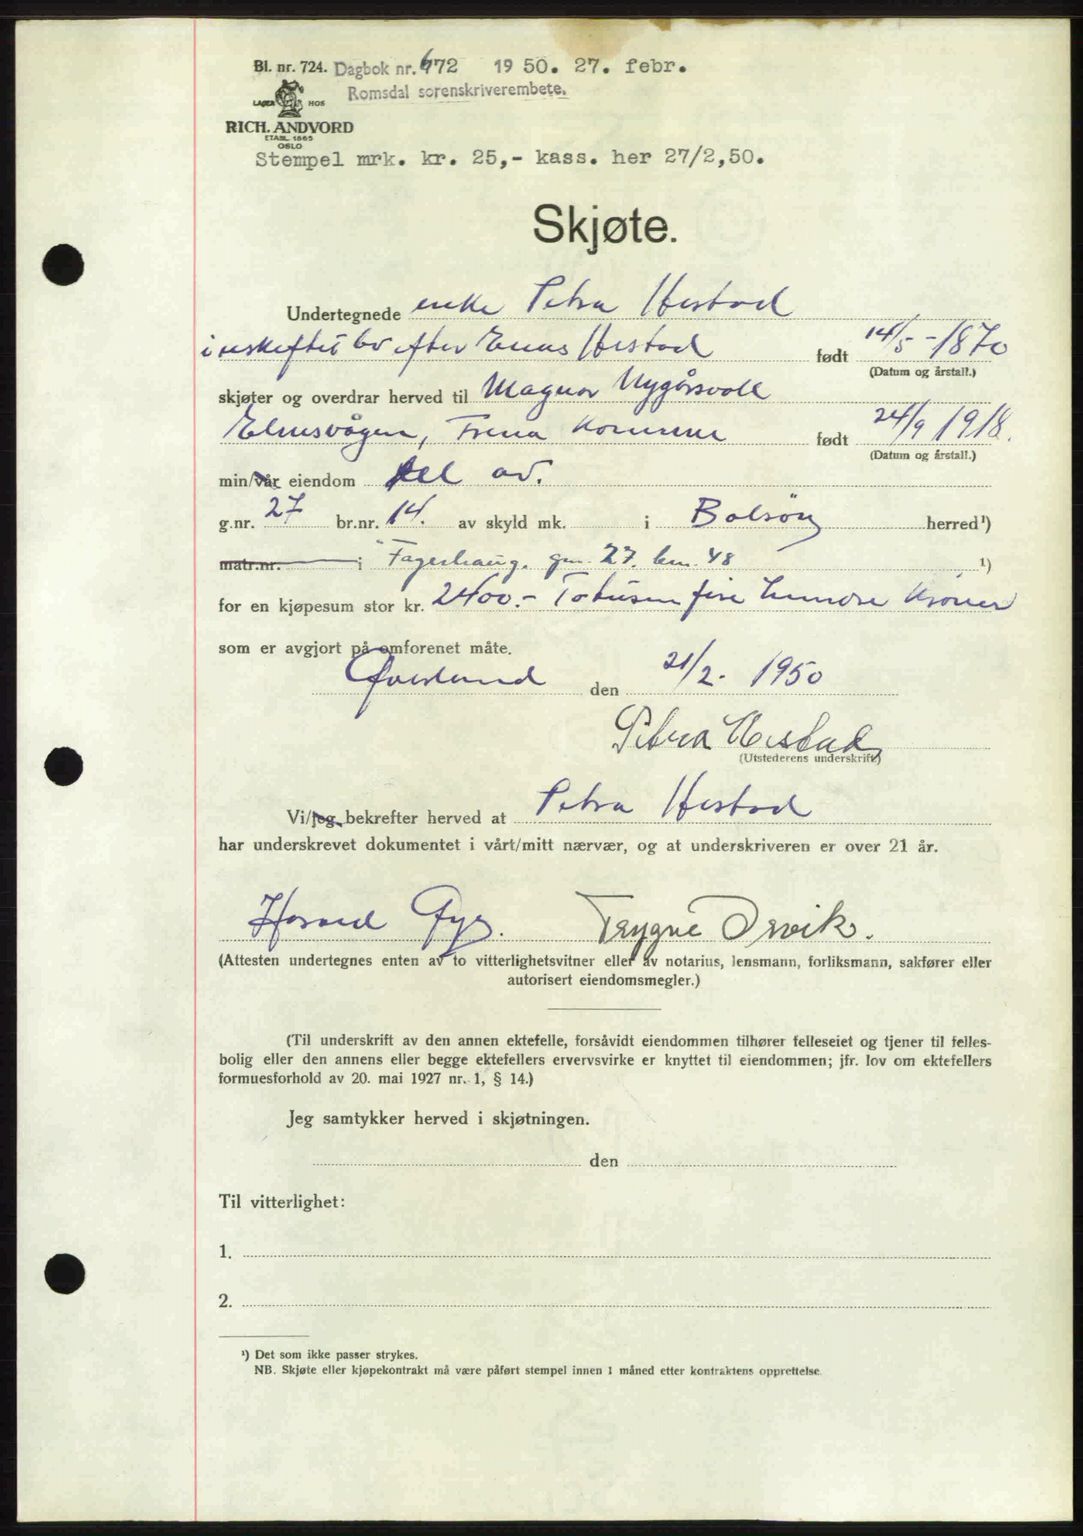 Bl. nr. 724. Dagbok nr. 672 1950. 27. febr.
LAGER HOS Romsdal sorenskriverembete.
RICH. ANDVORD
ETABL. 1865
OSLO
Stempel mrk. kr. 25,- kass. her 27/2,50.
Skjøte.
Undertegnede enke Petra Hestad
i uskiftet bo efter Enas Hestad født 14/5 - 1870
(Datum og årstall.)
skjøter og overdrar herved til Magnor Nygårsvold
Elnesvågen, Frena Kommune født 24/9 1918.
(Datum og årstall.)
min/vår eiendom del av.
g.nr. 27 br.nr. 14. av skyld mk. i Bolsøy herred¹)
matr.nr. i "Fagerhaug, gnr. 27. bnr. 48 ¹)
for en kjøpesum stor kr. 2400.- Totusen fire hundre Kroner
som er avgjort på omforenet måte.
den 21/2. 1950
Petra Hestad
(Utstederens underskrift)
Vi/jeg bekrefter herved at Petra Hestad
har underskrevet dokumentet i vårt/mitt nærvær, og at underskriveren er over 21 år.
Trygve
(Attesten undertegnes enten av to vitterlighetsvitner eller av notarius, lensmann, forliksmann, sakfører eller
autorisert eiendomsmegler.)
(Til underskrift av den annen ektefelle, forsåvidt eiendommen tilhører felleseiet og tjener til felles-
bolig eller den annens eller begge ektefellers ervervsvirke er knyttet til eiendommen; jfr. lov om ektefellers
formuesforhold av 20. mai 1927 nr. 1, § 14.)
Jeg samtykker herved i skjøtningen.
den
Til vitterlighet:
1.
2.
¹) Det som ikke passer strykes.
NB. Skjøte eller kjøpekontrakt må være påført stempel innen 1 måned etter kontraktens opprettelse.